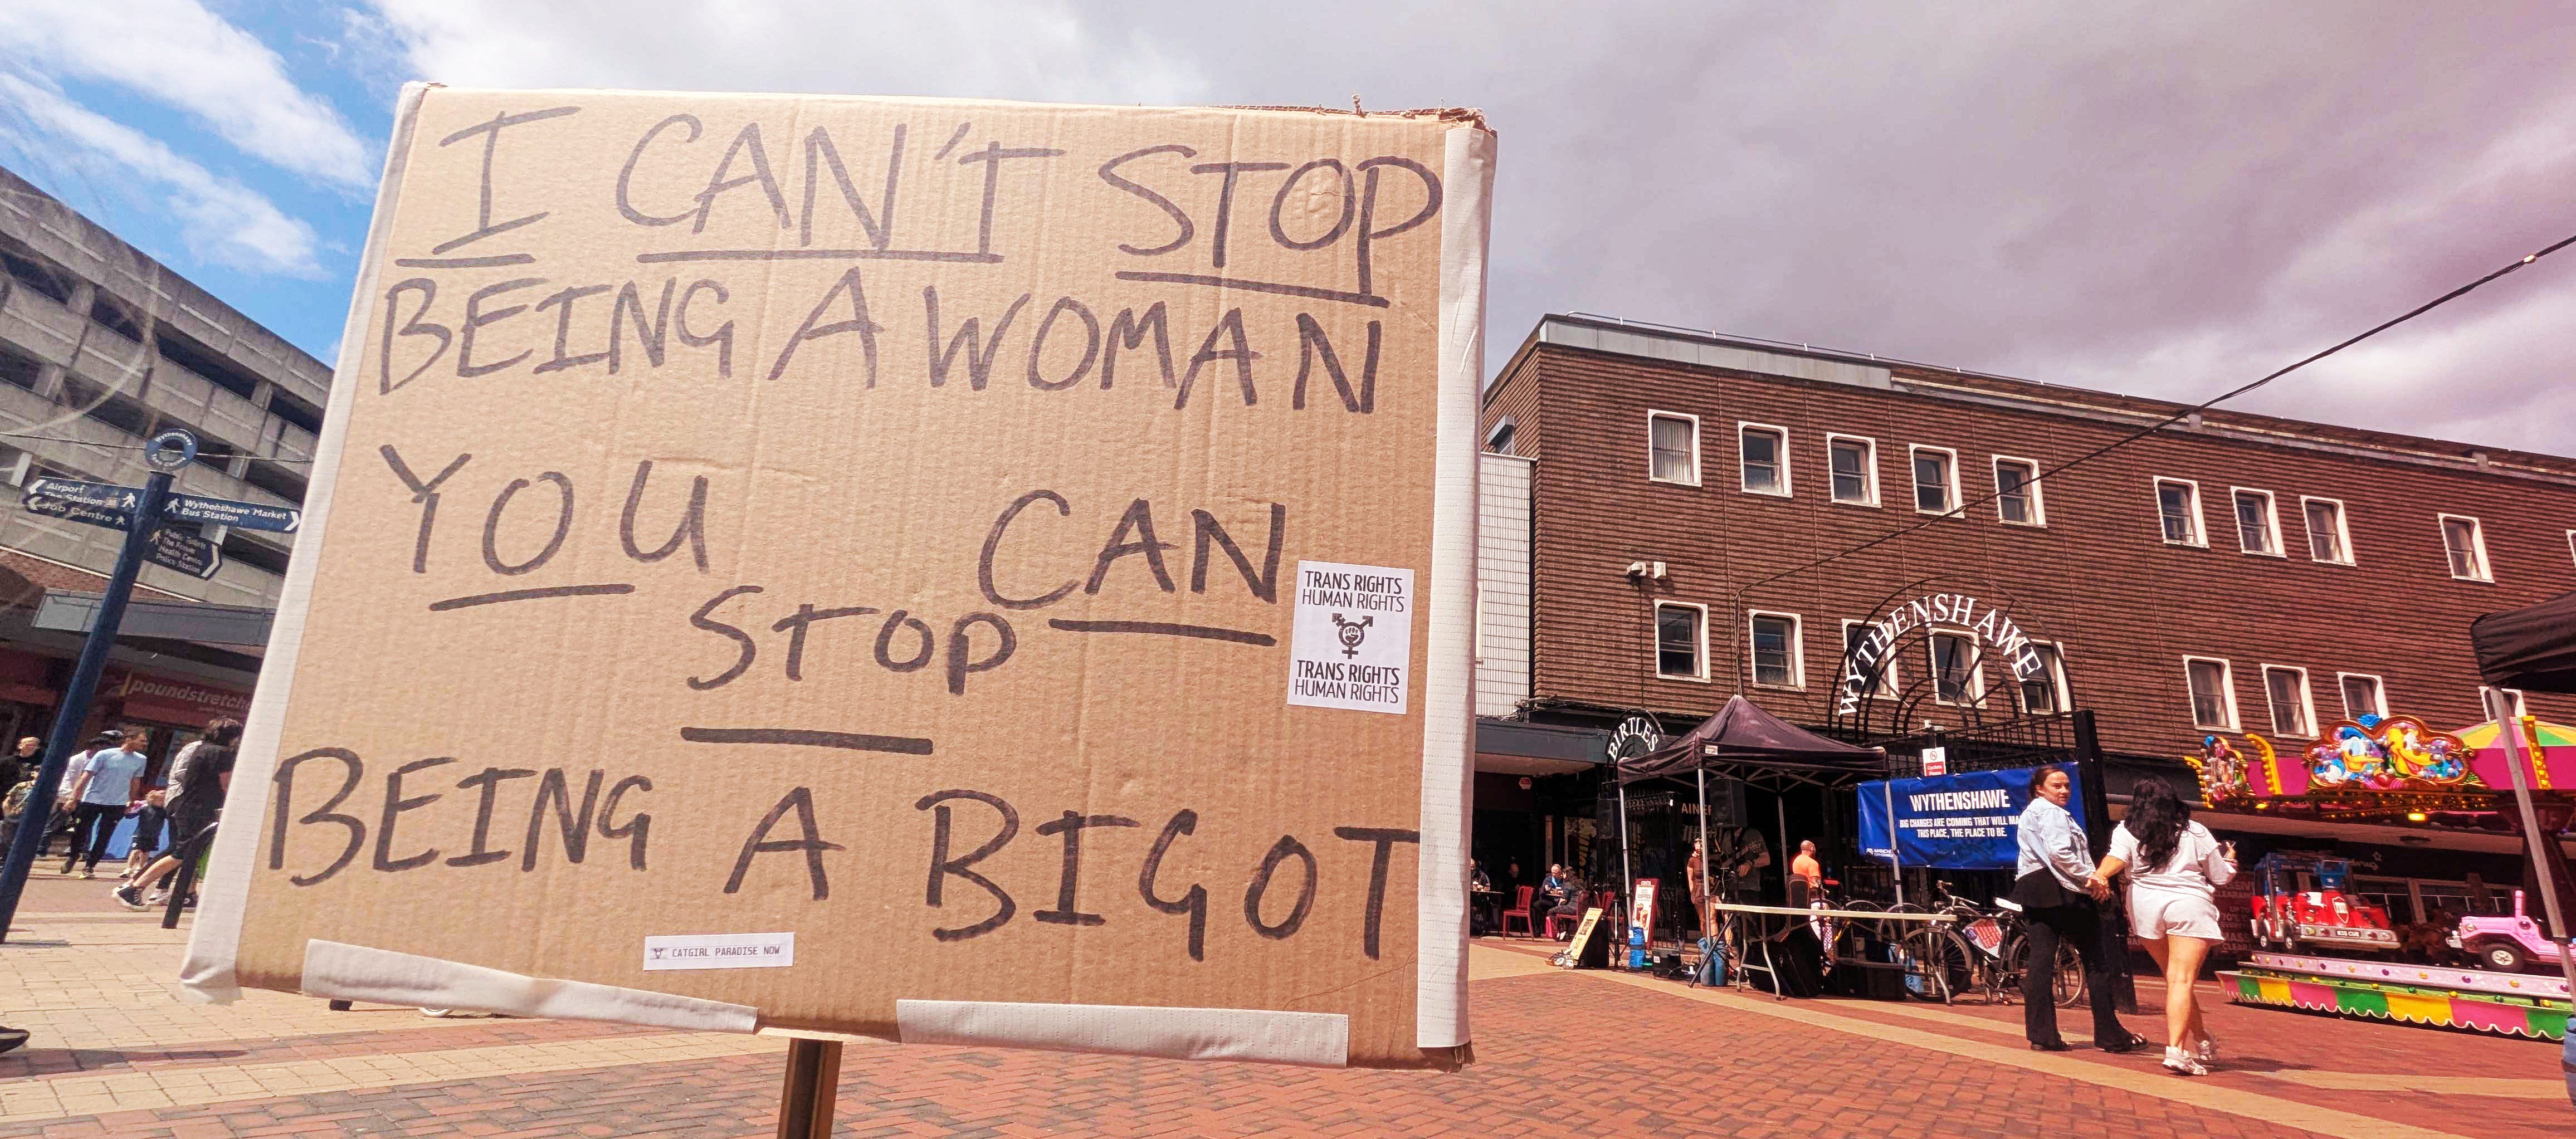 I CAN'T STOP
BEING A WOMAN
YOU CAN
STOP
BEING A BIGOT
TRANS RIGHTS
HUMAN RIGHTS
TRANS RIGHTS
HUMAN RIGHTS
CATGIRL PARADISE NOW
Wythenshawe
Town Centre
Airport
The Station
Job Centre
Wythenshawe Market
Bus Station
Public Toilets
The Forum
Health Centre
Police Station
poundstretch
WYTHENSHAWE
BIRTLES
WYTHENSHAWE
BIG CHANGES ARE COMING THAT WILL MA
THIS PLACE, THE PLACE TO BE.